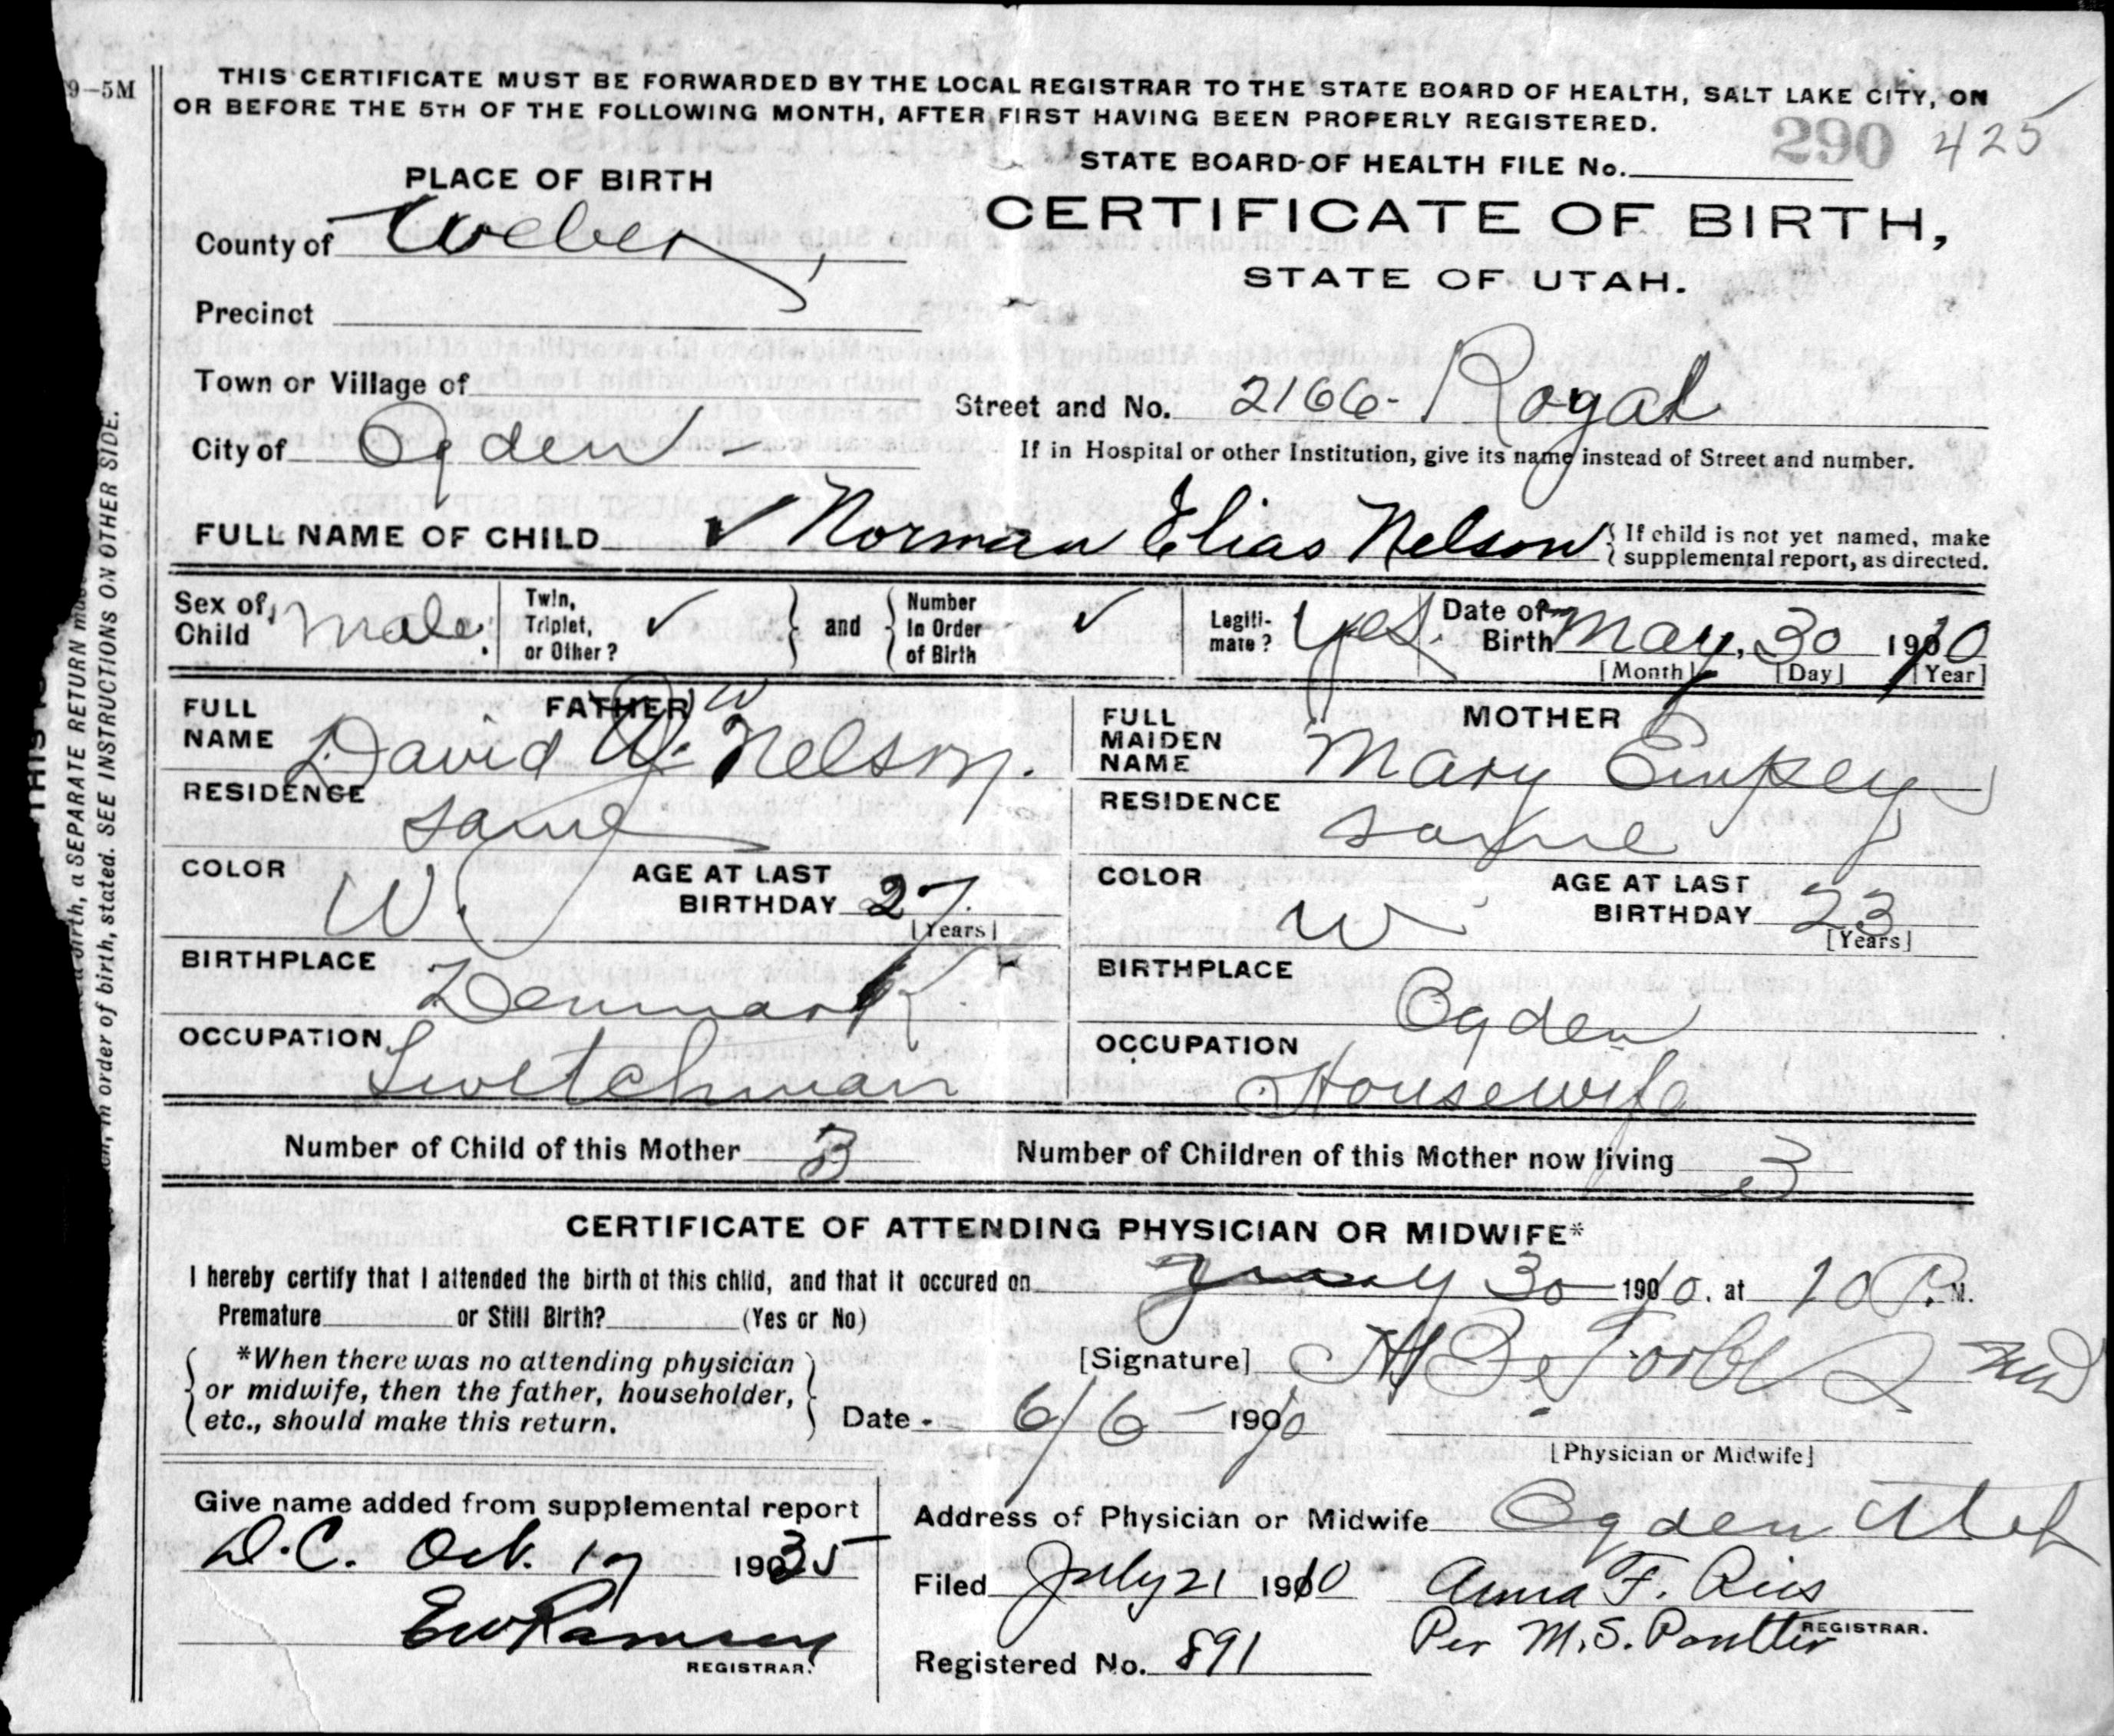 9–5M
THIS CERTIFICATE MUST BE FORWARDED BY THE LOCAL REGISTRAR TO THE STATE BOARD OF HEALTH, SALT LAKE CITY, ON
OR BEFORE THE 5TH OF THE FOLLOWING MONTH, AFTER FIRST HAVING BEEN PROPERLY REGISTERED.
290 425
STATE BOARD OF HEALTH FILE No.
PLACE OF BIRTH
CERTIFICATE OF BIRTH,
STATE OF UTAH.
County of Weber,
Precinct
Town or Village of
Street and No. 2166- Royal
City of Ogden -
If in Hospital or other Institution, give its name instead of Street and number.
FULL NAME OF CHILD ✓ Norman Elias Nelson
If child is not yet named, make
supplemental report, as directed.
Sex of Child Male.
Twin, Triplet, or Other? ✓
and
Number in Order of Birth ✓
Legitimate? Yes.
Date of Birth May, 30 1910
[Month] [Day] [Year]
FATHER
FULL NAME David W. Nelson.
RESIDENCE same
COLOR W.
AGE AT LAST BIRTHDAY 27.
[Years]
BIRTHPLACE Denmark
OCCUPATION Switchman
MOTHER
FULL MAIDEN NAME Mary Empey
RESIDENCE same
COLOR W
AGE AT LAST BIRTHDAY 23
[Years]
BIRTHPLACE Ogden
OCCUPATION Housewife
Number of Child of this Mother 3
Number of Children of this Mother now living 3
CERTIFICATE OF ATTENDING PHYSICIAN OR MIDWIFE*
I hereby certify that I attended the birth of this child, and that it occured on May 30 1910. at 10 P. M.
Premature or Still Birth? (Yes or No)
*When there was no attending physician
or midwife, then the father, householder,
etc., should make this return.
[Signature]
Date 6/6- 1910
[Physician or Midwife]
Give name added from supplemental report
D.C. Oct. 17 1935
EW Ramsey
REGISTRAR.
Address of Physician or Midwife Ogden Utah
Filed July 21 1910
Anna F. Ries
Per M.S. Poulter
REGISTRAR.
Registered No. 891
birth, a SEPARATE RETURN
in order of birth, stated. SEE INSTRUCTIONS ON OTHER SIDE.